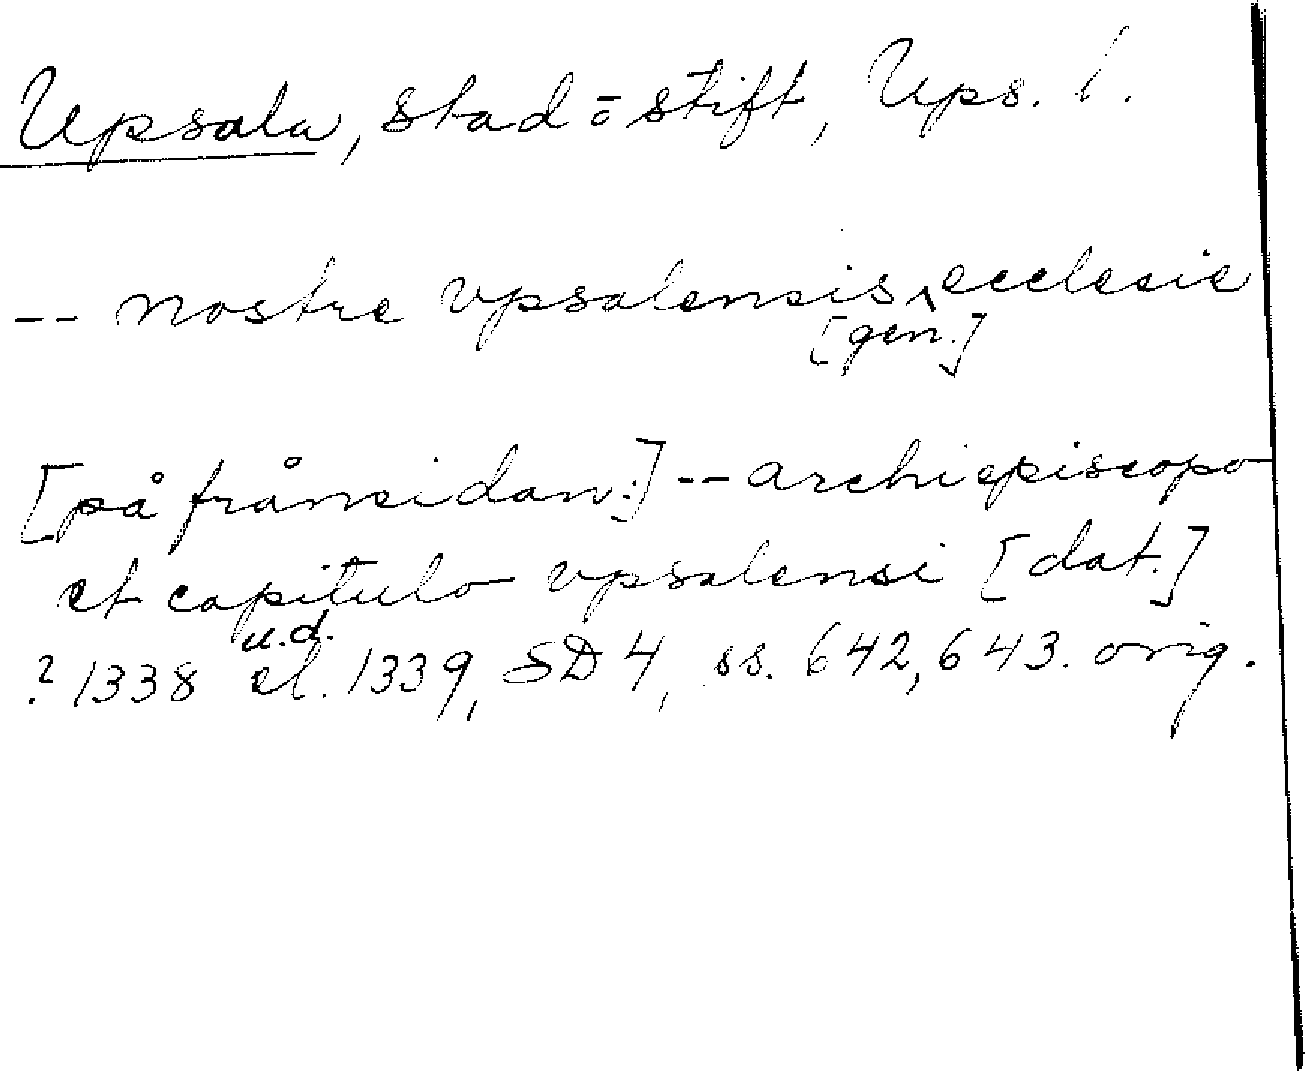 Upsala, stad = stift, Ups. l.
-- nostre vpsalensis ecclesie
[gen.]
[på frånsidan:] -- archiepiscopo
et capitulo vpsalensi [dat.]
u.d.
? 1338 el. 1339, SD 4, ss. 642, 643. orig.